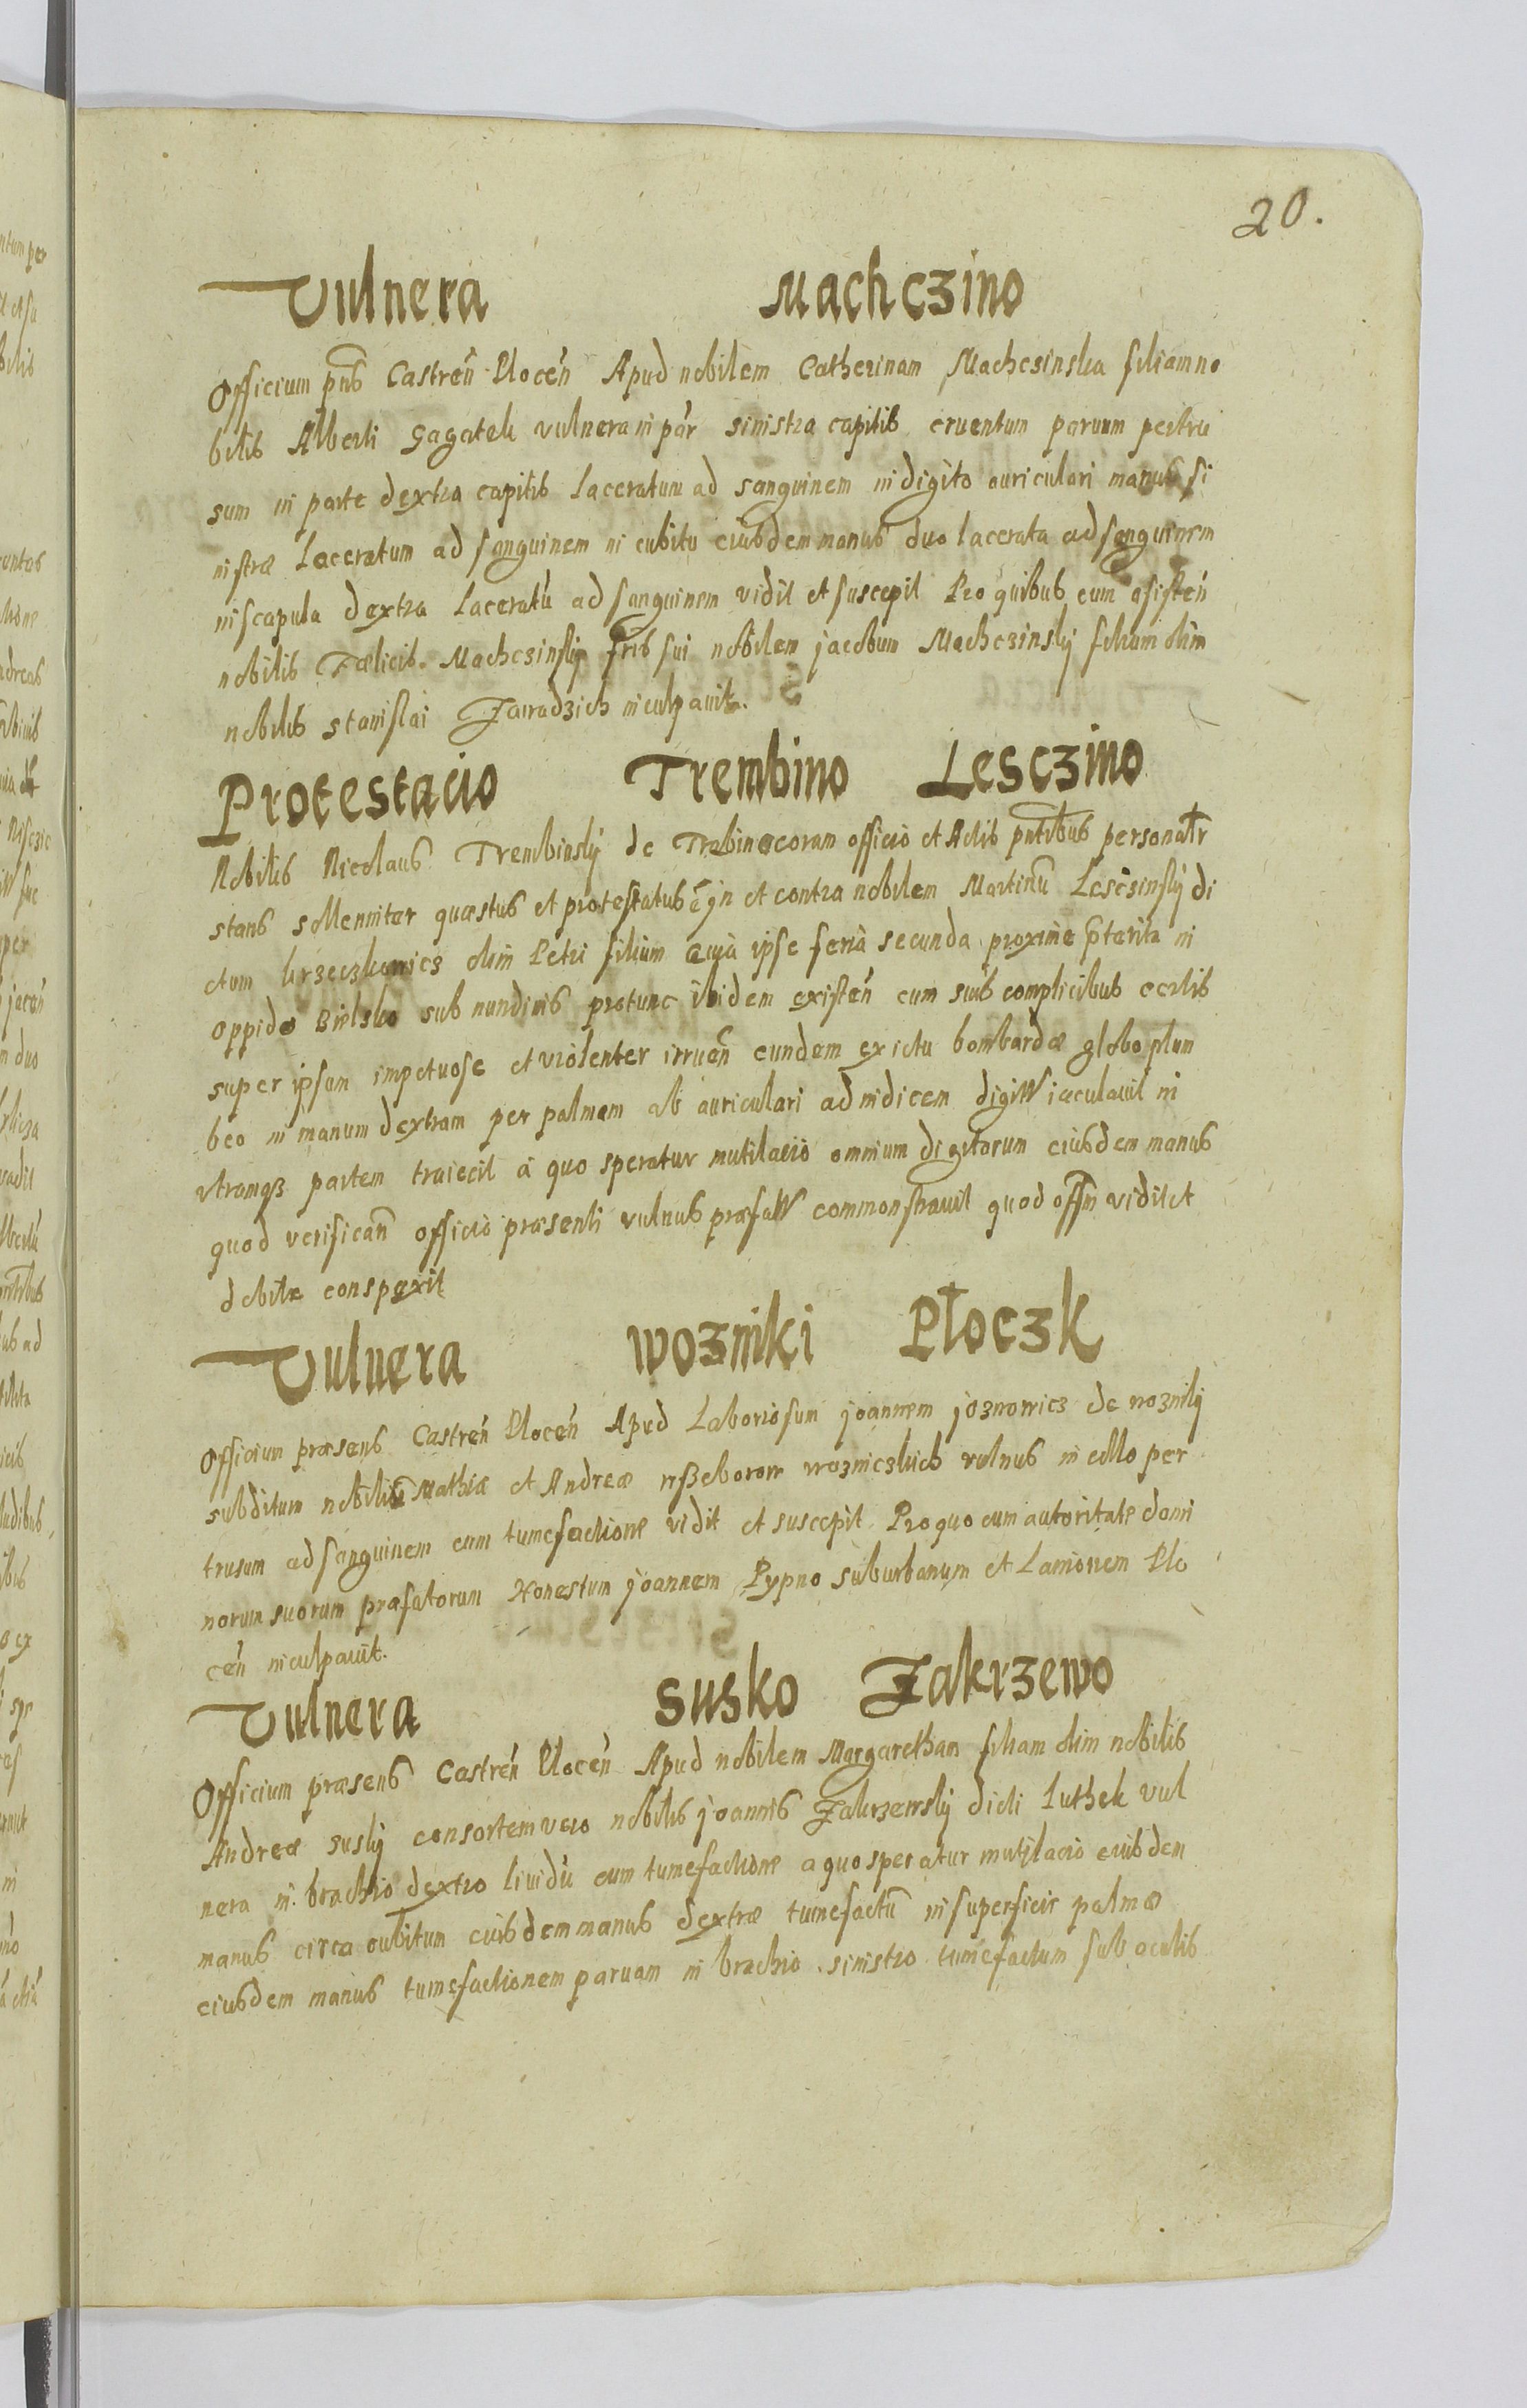 20.
Vulnera Machczino
Officium pñs Castreñ Plocen̄ Apud nobilem Catherinam Machczinska filiam no
bilis Alberti Gagatek vulnera in par sinistra capitis cruentum paruum pertru
sum in parte dextra capitis laceratum ad sanguinem in digito auriculari manus si
nistræ Laceratum ad sanguinem in cubitu eiusdem manus duo lacerata ad sanguinem
in scapula dextra Laceratū ad sanguinem vidit et suscepit Pro quibus cum asisteñ
nobilis Fælicis Machczinskij fr̃is sui nobilem jacobum Machczinskij filium olim
nobilis stanislai Zawadzich inculpauit.
Protestacio Trembino Lesczino
Nobilis Nicolaus Trembinskij de Trebino coram officio et Actis pñtibus personalr̃
stans sollemniter quæstus et protestatus ē in et contra nobilem Martinū Lescsinskij di
ctum krzeczkowicz olim Petri filium quia ipse feria secunda proxime p̃terita in
oppido Bielsko sub nundinis protunc ibidem existeñ cum suis complicibus certis
super ipsum impetuose et violenter irrueñ eundem ex ictu bombardæ globo plum
beo in manum dextram per palmam ab auriculari ad indicem digitū iaculauit in
vtramq3 partem traiecit a quo speratur mutilacio omnium digitorum eiusdem manus
quod verificañ officio præsenti vulnus præfatū commonstrauit quod offm̃ vidit et
debite conspexit
Vulnera wozniki Płoczk
Officium præsens Castreñ Ploceñ Apud Laboriosum joannem joznowicz de woznikj
subditum nobiliū Mathiæ et Andreæ wßeborow wozniczkich vulnus in collo per
trusum ad sanguinem cum tumefactione vidit et suscepit Pro quo cum autoritate domi
norum suorum præfatorum Honestum joannem Pypno suburbanum et Lanionem Plo
ceñ inculpauit.
Vulnera susko Zakrzewo
Officium præsens Castreñ Ploceñ Apud nobilem Margaretham filiam olim nobilis
Andreæ suskj consortem vero nobilis joannis Zakrzewskij dicti Luthek vul
nera in brachio dextro liuidū cum tumefactione a quo speratur mutilacio eiusdem
manus circa cubitum eiusdem manus dextræ tumefactū in superficie palmæ
eiusdem manus tumefactionem paruam in brachio sinistro tumefactum sub oculis